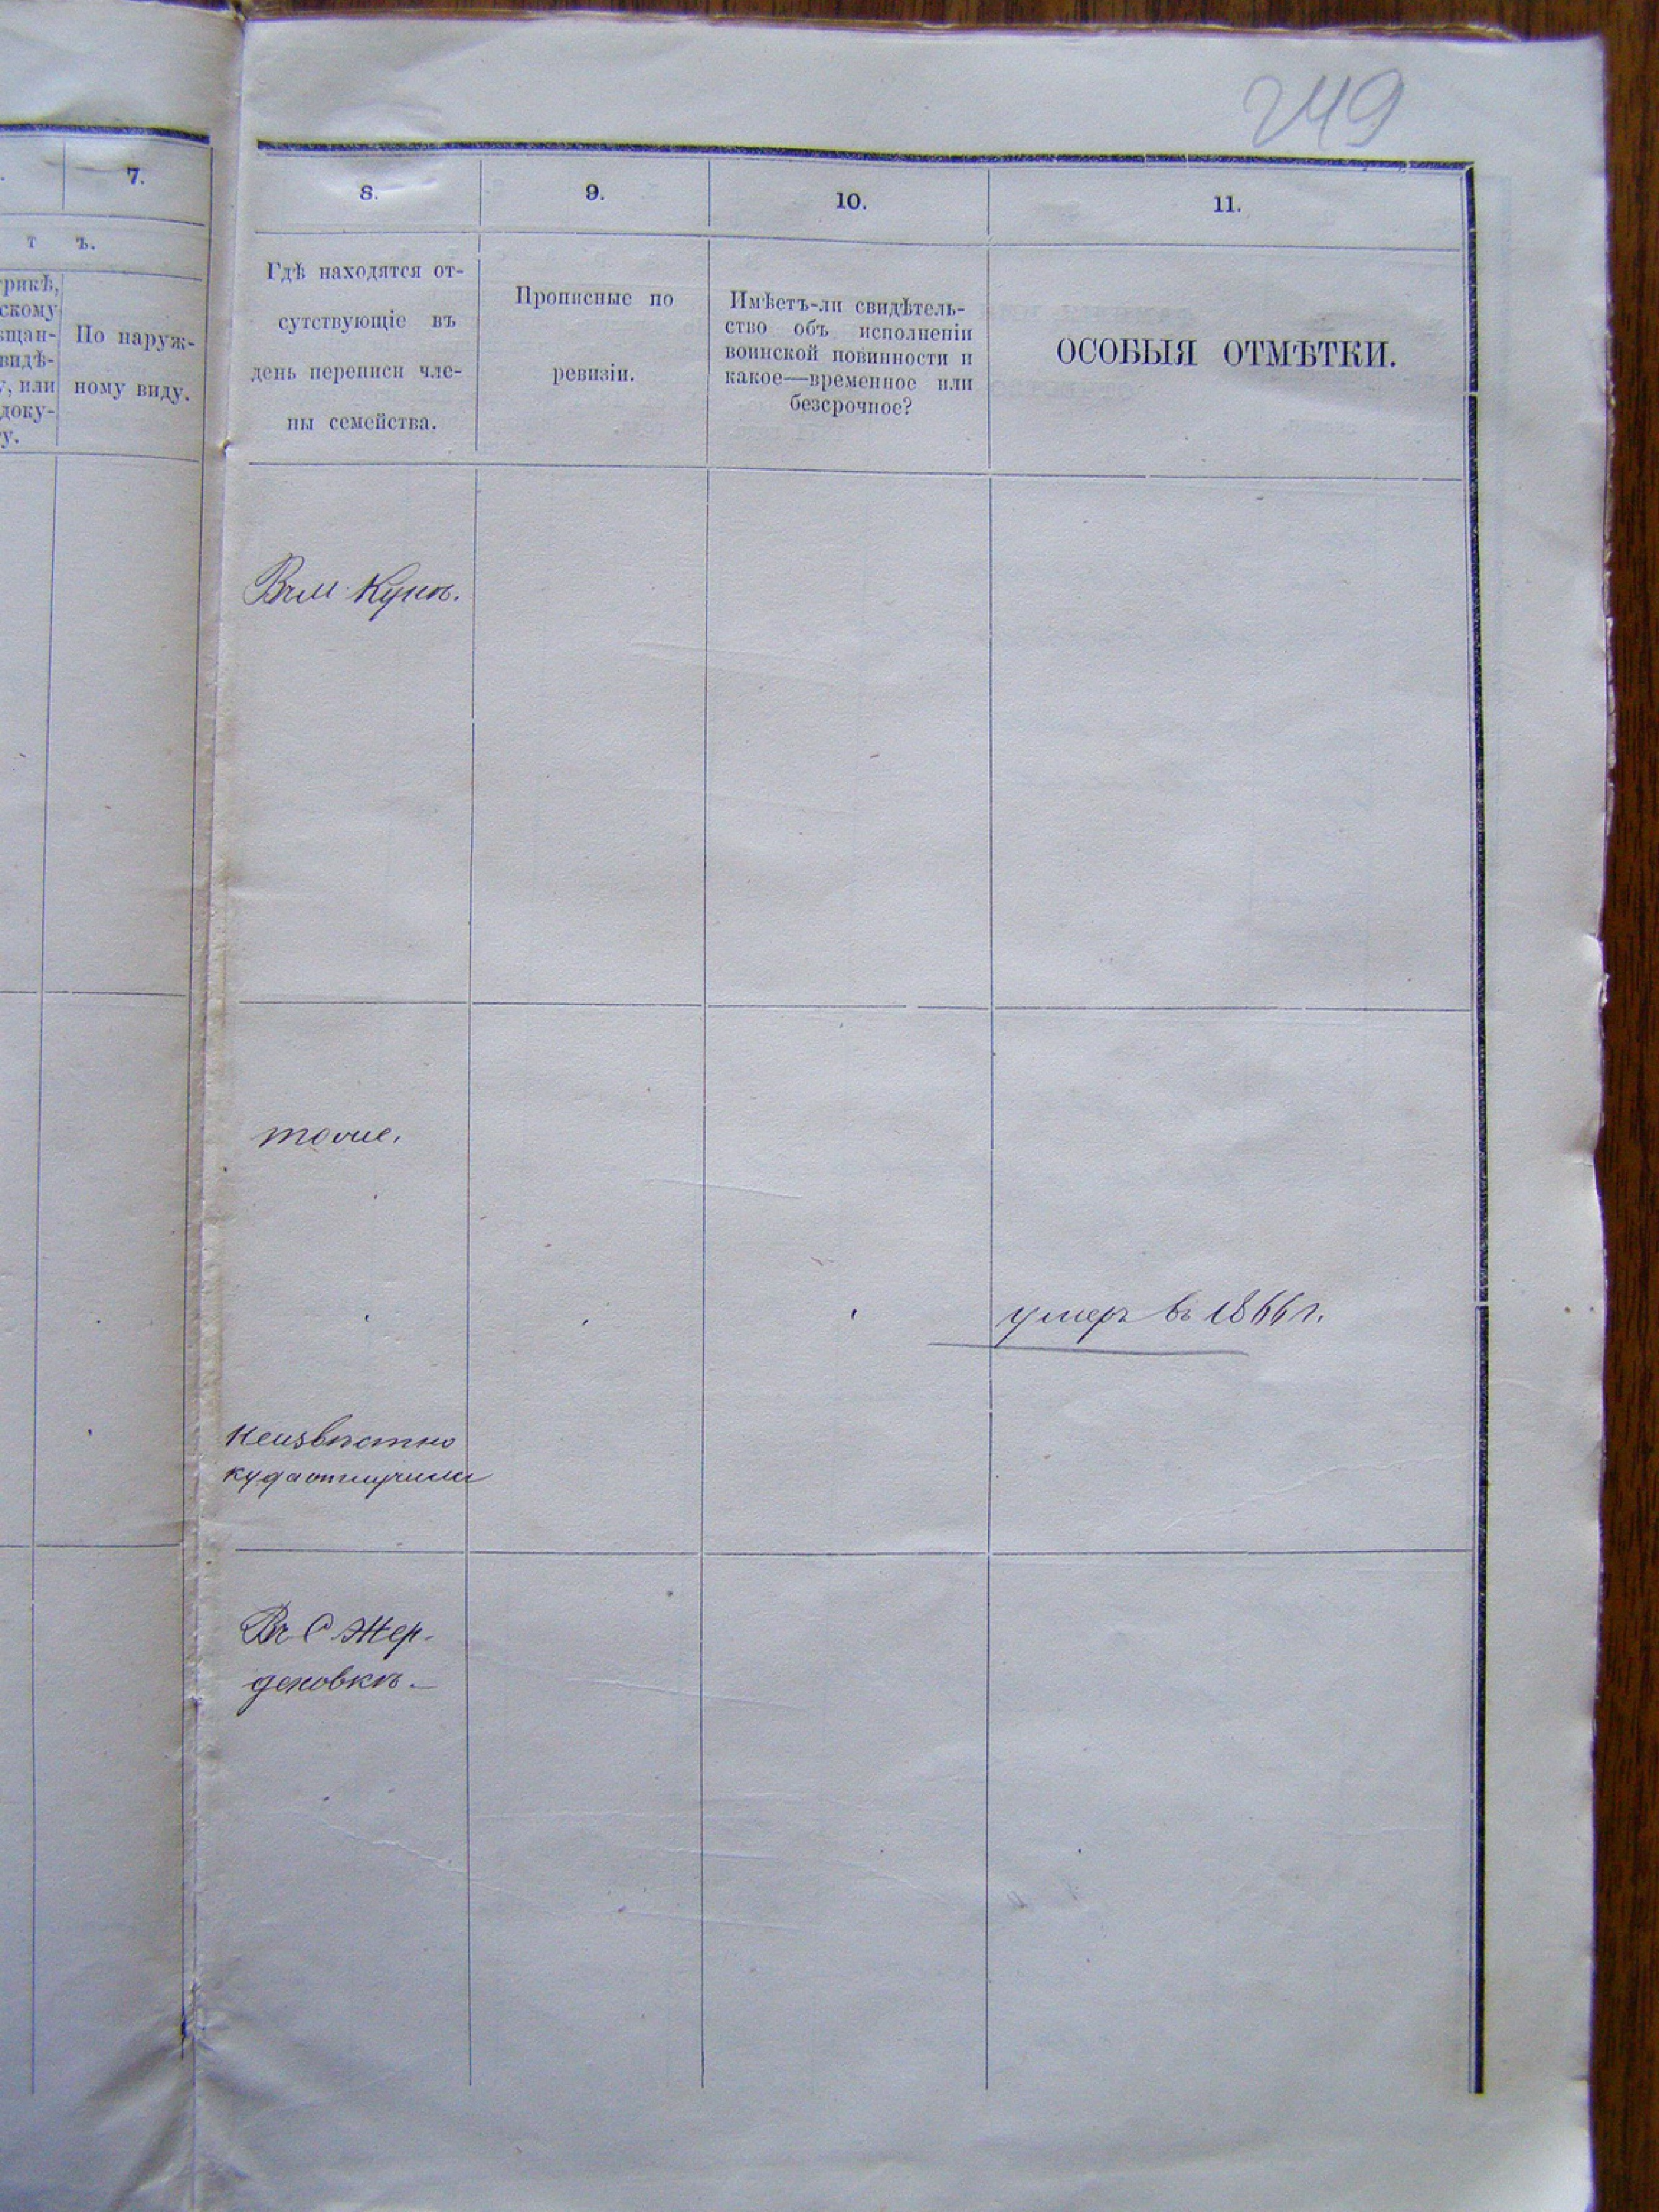 249
7.
т ъ.
По наруж-
ному виду.
8.
9.
10.
11.
Гдѣ находятся от-
сутствующіе въ
день переписи чле-
ны семейства.
Прописные по
ревизіи.
Имѣетъ-ли свидѣтель-
ство объ исполненіи
воинской повинности и
какое—временное или
безсрочное?
ОСОБЫЯ ОТМѢТКИ.
Въ м Кунѣ.
тоже.
умеръ въ 1866 г.
неизвѣстно
куда отлучился
Въ С. Жер-
деновкѣ.